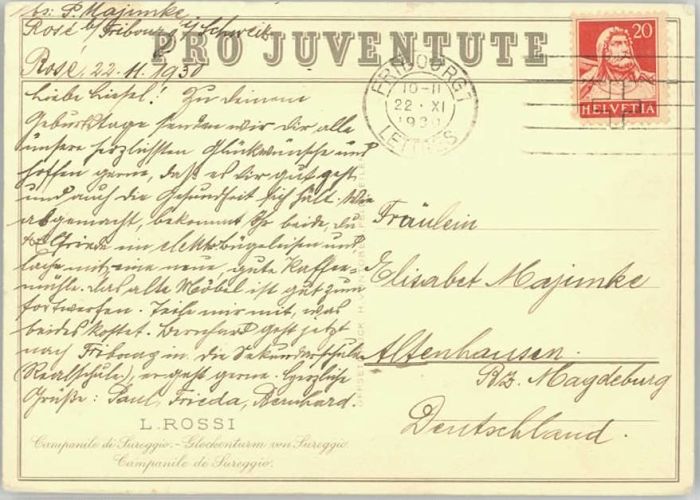 Abs: P. Majimke
Rosé b/Fribourg i/Schweiz
PRO JUVENTUTE
Rosé, 22.11.1930
FRIBOURG 1
10-11
22 · XI
1930
LETTRES
20
HELVETIA
Liebe Liesel! Zu deinem
Geburtstage senden wir Dir alle
unsere herzlichsten Glückwünsche und
hoffen gerne, daß es Dir gut geht
und auch die Gesundheit sich hält. Wie
abgemacht, bekommt Ihr beide, Du
Elfriede ein elektr. Bügeleisen und
eine neue, gute Kaffee-
mühle. Das alte Möbel ist gut zum
fortwerfen. Teile mir mit, was
beides kostet. Bernhard geht jetzt
nach Fribourg in die Sekundarschule
(Realschule), er geht gerne. Herzliche
Grüße: Paul, Frieda, Bernhard.
Fräulein
Elisabet Majimke
Altenhausen.
Bz. Magdeburg
Deutschland.
L. ROSSI
Campanile di Sureggio. - Glockenturm von Sureggio
Campanile de Sureggio.